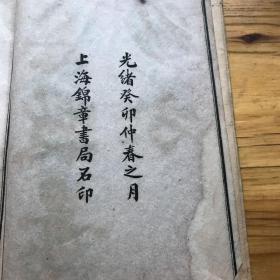 光緒癸卯仲春之月
上海錦章書局石印